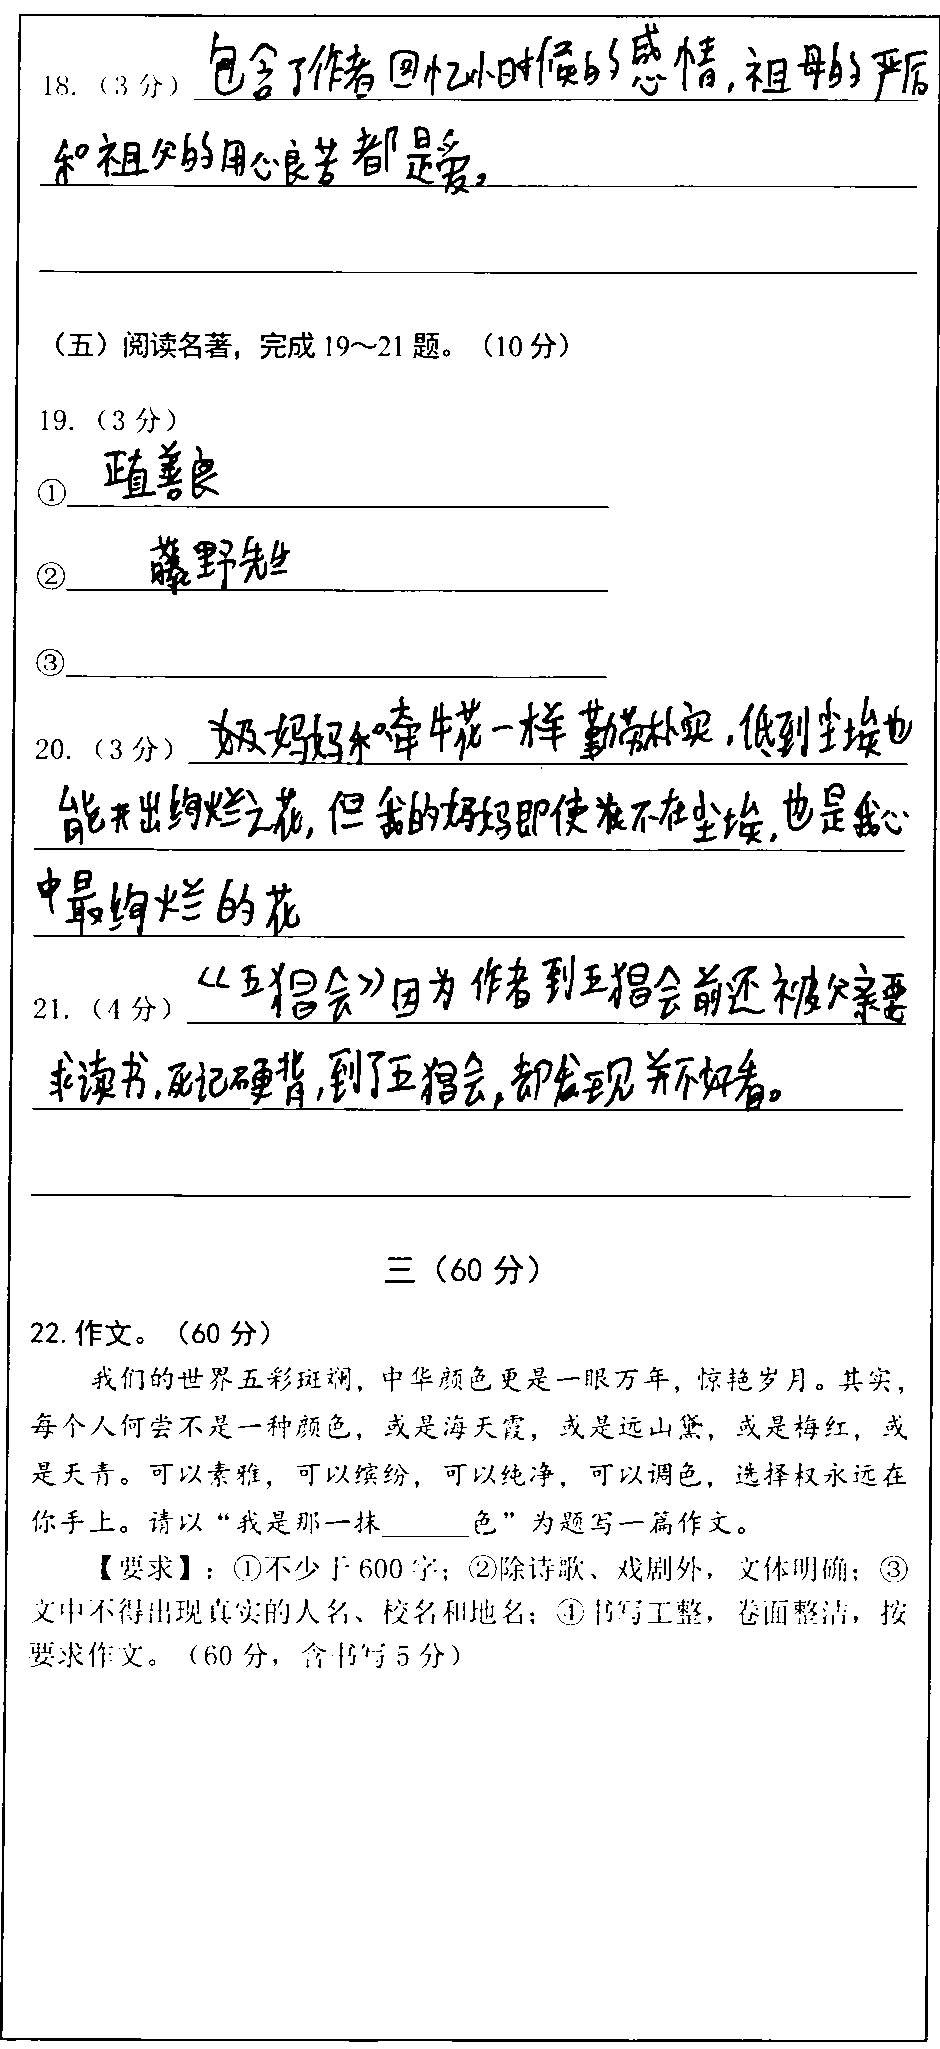 18.（3分）包含了作者回忆小时候的感情，祖母的严厉
和祖父的用心良苦都是爱。
（五）阅读名著，完成19～21题。（10分）
19.（3分）
①正直善良
②藤野先生
③
20.（3分）妈妈和牵牛花一样勤劳朴实，低到尘埃也
能开出绚烂之花，但我的妈妈即使不在尘埃，也是我心
中最绚烂的花
21.（4分）《五猖会》因为作者到五猖会前还被父亲要
求读书，死记硬背，到了五猖会，却发现并不好看。
三（60分）
22.作文。（60分）
我们的世界五彩斑斓，中华颜色更是一眼万年，惊艳岁月。其实，
每个人何尝不是一种颜色，或是海天霞，或是远山黛，或是梅红，或
是天青。可以素雅，可以缤纷，可以纯净，可以调色，选择权永远在
你手上。请以“我是那一抹______色”为题写一篇作文。
【要求】：①不少于600字；②除诗歌、戏剧外，文体明确；③
文中不得出现真实的人名、校名和地名；④书写工整，卷面整洁，按
要求作文。（60分，含书写5分）